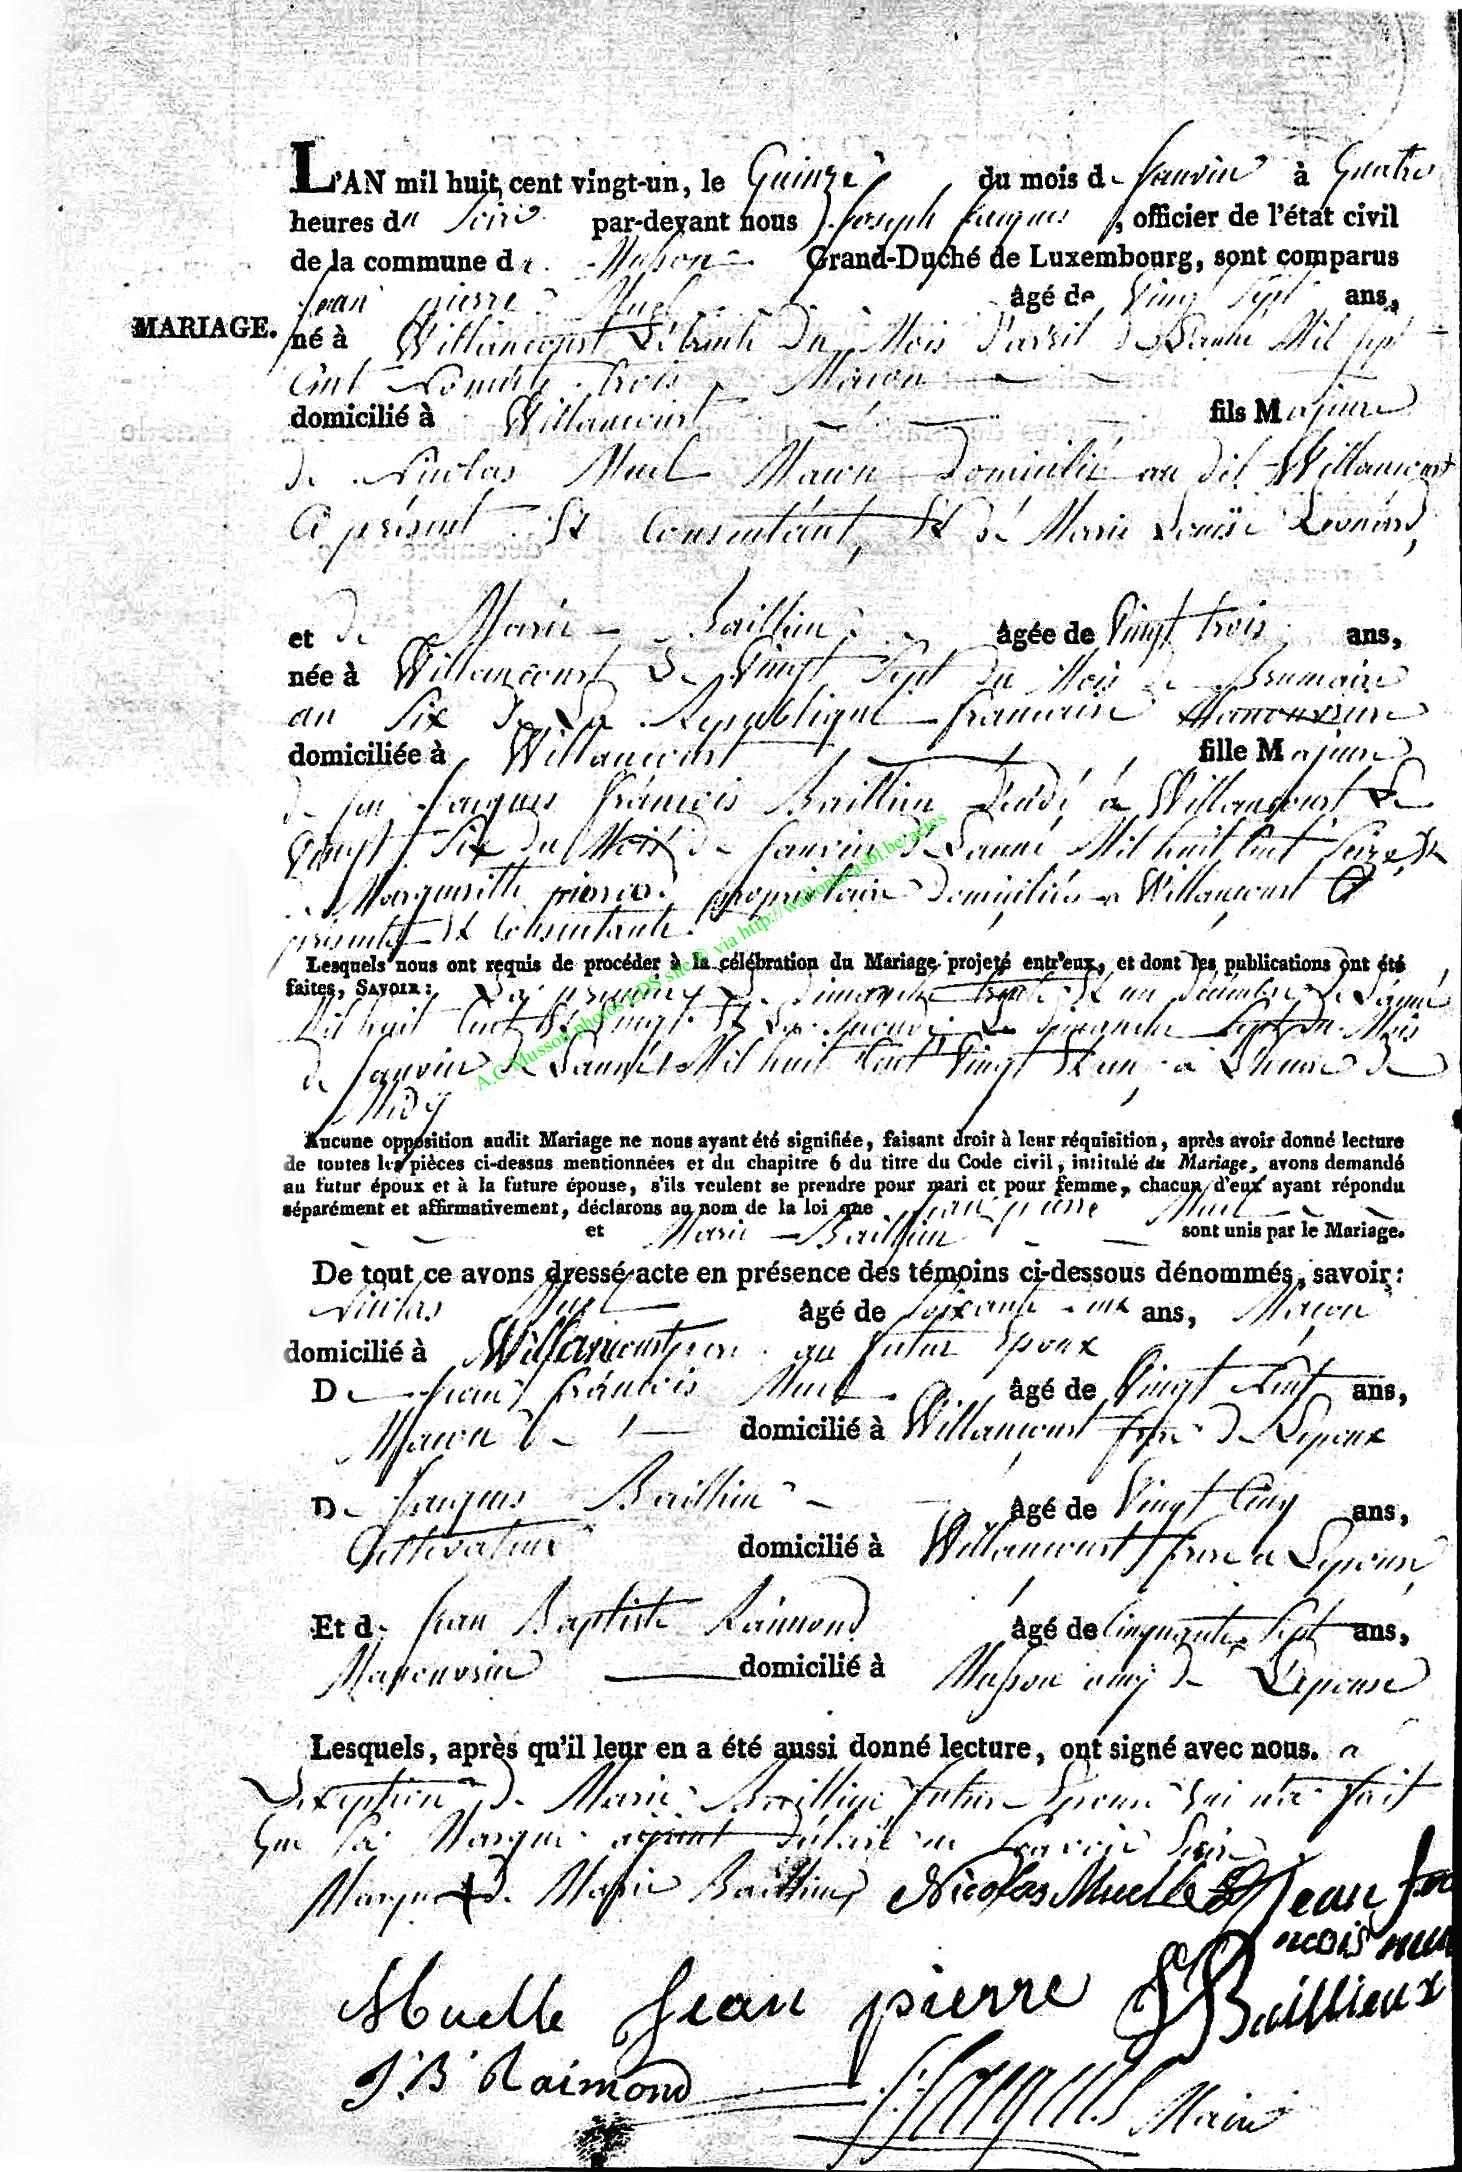 L'AN mil huit cent vingt-un, le Quinze du mois de Janvier à Quatre
heures du Soire par-devant nous Joseph Jacques, officier de l'état civil
de la commune de Musson Grand-Duché de Luxembourg, sont comparus
Jean pierre Muel âgé de Vingt Sept ans,
MARIAGE.
né à Willancourt Le trente Du Mois d'avril de Lanné Mil sept
Cent Nonente trois Macon
domicilié à Willancourt fils Majeure
de Nicolas Muel Macon Domicilié au dit Willancourt
A présent Et Consentant, Et de Marie Louise Leonard,
et de Marie Baillieu âgée de Vingt trois ans,
née à Willancourt Le Vingt Sept du Mois de Brumaire
an Six De La Republique francaise Manouvriere
domiciliée à Willancourt fille Majeure
de feu Jacques François Baillieu Decdé à Willancourt Le
Vingt Six du Mois de Janvier de Lanné Mil huit Cent Seize Et
de Margueritte pierrard propriétaire Domiciliée a Willancourt A
présente Et Consentante.
Lesquels nous ont requis de procéder à la célébration du Mariage projeté entr'eux, et dont les publications ont été
faites, SAVOIR: La premiere Le Dimanche trente Et un Décembre De Lanné
Mil huit Cent Et Vingt Et La Seconde Le Dimanche Sept du Mois
de Janvier de Lannée Mil huit Cent Vingt Et un a Lheure de
Midy
Aucune opposition audit Mariage ne nous ayant été signifiée, faisant droit à leur réquisition, après avoir donné lecture
de toutes les pièces ci-dessus mentionnées et du chapitre 6 du titre du Code civil, intitulé du Mariage, avons demandé
au futur époux et à la future épouse, s'ils veulent se prendre pour mari et pour femme, chacun d'eux ayant répondu
séparément et affirmativement, déclarons au nom de la loi que Jean pierre Muel
et Marie Baillieu sont unis par le Mariage.
De tout ce avons dressé acte en présence des témoins ci-dessous dénommés, savoir:
Nicolas Muel âgé de Soixante ans, Macon
domicilié à Willancourt pere au futur Epoux
De Jean francois Muel âgé de Vingt ans,
Macon domicilié à Willancourt frere de Lepoux
De Jacques Baillieu âgé de Vingt Cinq ans,
Cultivateur domicilié à Willancourt frere a Lepouse
Et de Jean Baptiste Raimond âgé de Cinquante Sept ans,
Manouvrier domicilié à Musson amy de Lepouse
Lesquels, après qu'il leur en a été aussi donné lecture, ont signé avec nous. a
Lexeption de Marie Baillieu future Epouse qui n'a fait
que Sa Marque ayant déclaré ne Scavoir
Marque de Marie Baillieu Nicolas Muelle Jean fra
ncois muel
Muelle Jean pierre J Baillieux
J.B Raimond J. Jacques Maire
A.C Musson photos LDS site® via http://wallonia-asbl.be/actes